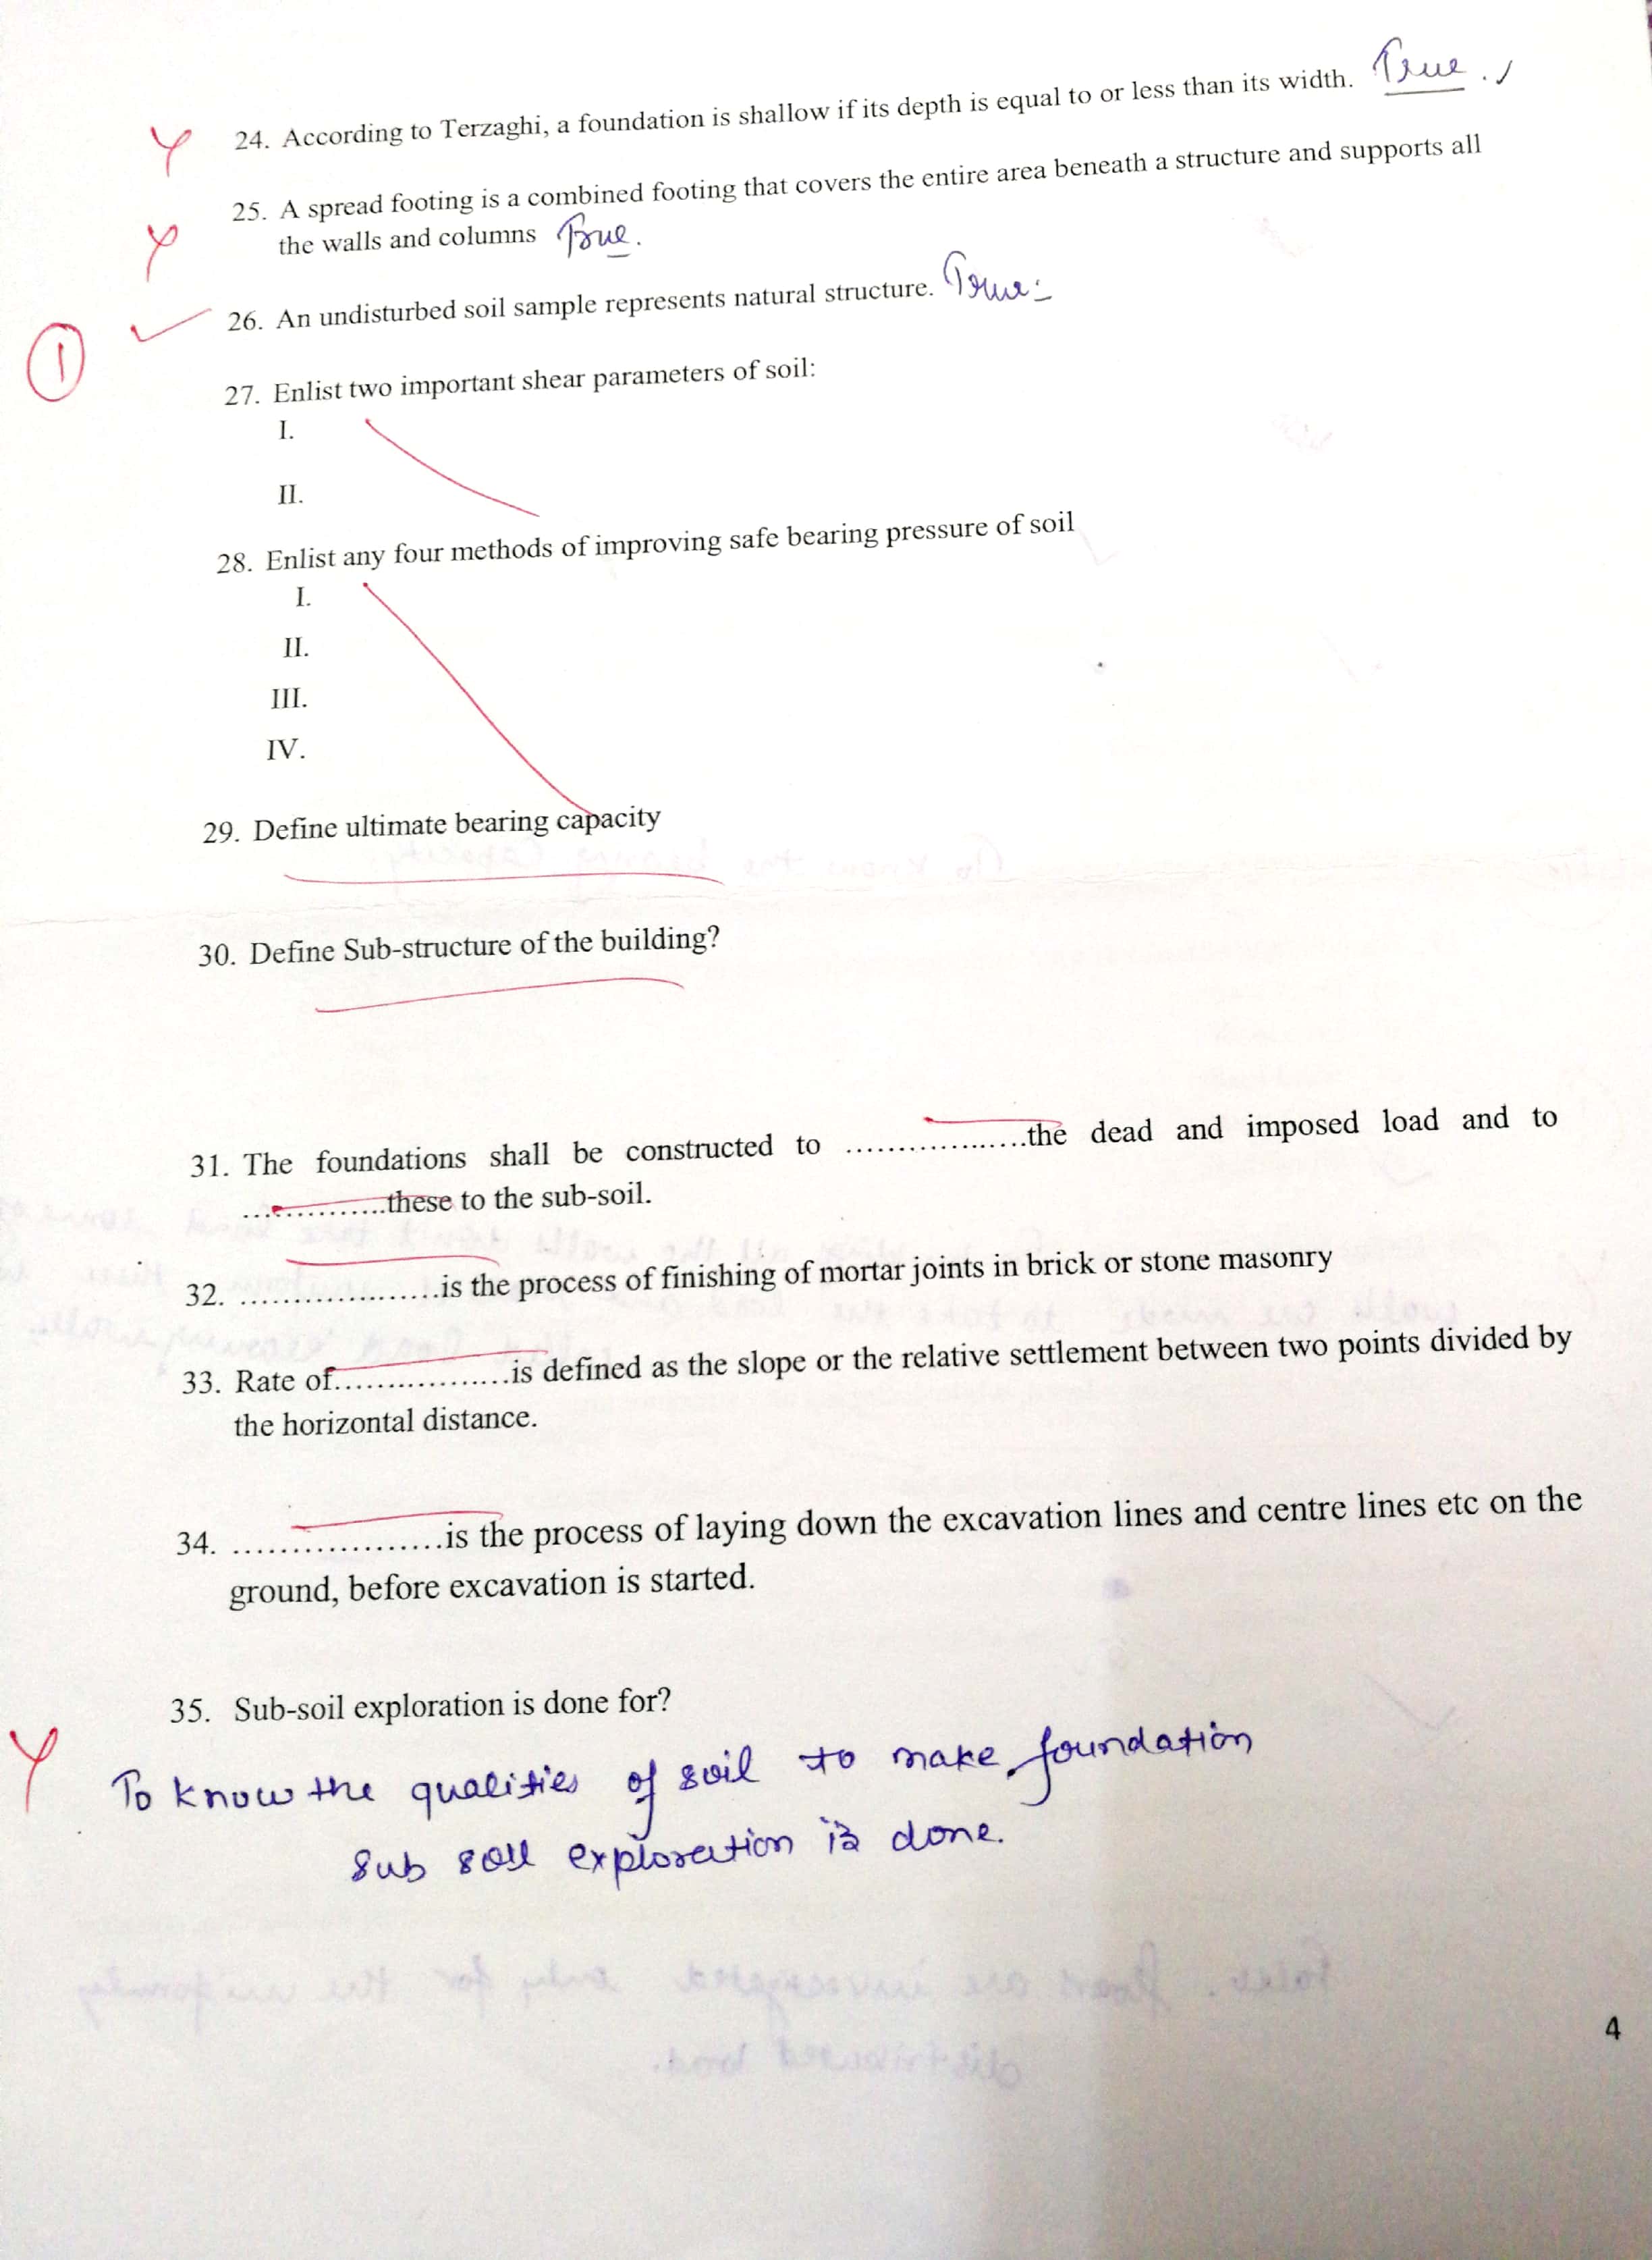 24. According to Terzaghi, a foundation is shallow if its depth is equal to or less than its width. True.
25. A spread footing is a combined footing that covers the entire area beneath a structure and supports all
the walls and columns True.
26. An undisturbed soil sample represents natural structure. True.
1
27. Enlist two important shear parameters of soil:
I.
II.
28. Enlist any four methods of improving safe bearing pressure of soil
I.
II.
III.
IV.
29. Define ultimate bearing capacity
30. Define Sub-structure of the building?
31. The foundations shall be constructed to ..................the dead and imposed load and to
..............these to the sub-soil.
32. ....................is the process of finishing of mortar joints in brick or stone masonry
33. Rate of..................is defined as the slope or the relative settlement between two points divided by
the horizontal distance.
34. .....................is the process of laying down the excavation lines and centre lines etc on the
ground, before excavation is started.
35. Sub-soil exploration is done for?
To know the qualities of soil to make foundation
Sub soil exploration is done.
4